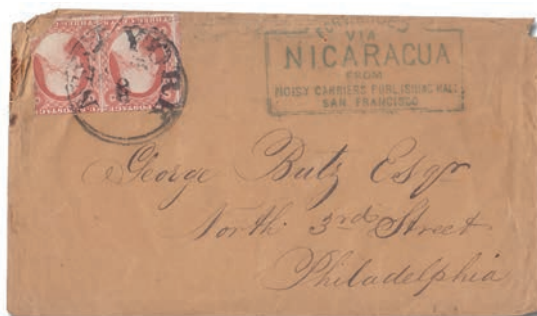 NEW YORK
VIA
NICARAGUA
FROM
NOISY CARRIERS PUBLISHING HALL
SAN FRANCISCO
George Butz Esqr
North 3rd Street
Philadelphia